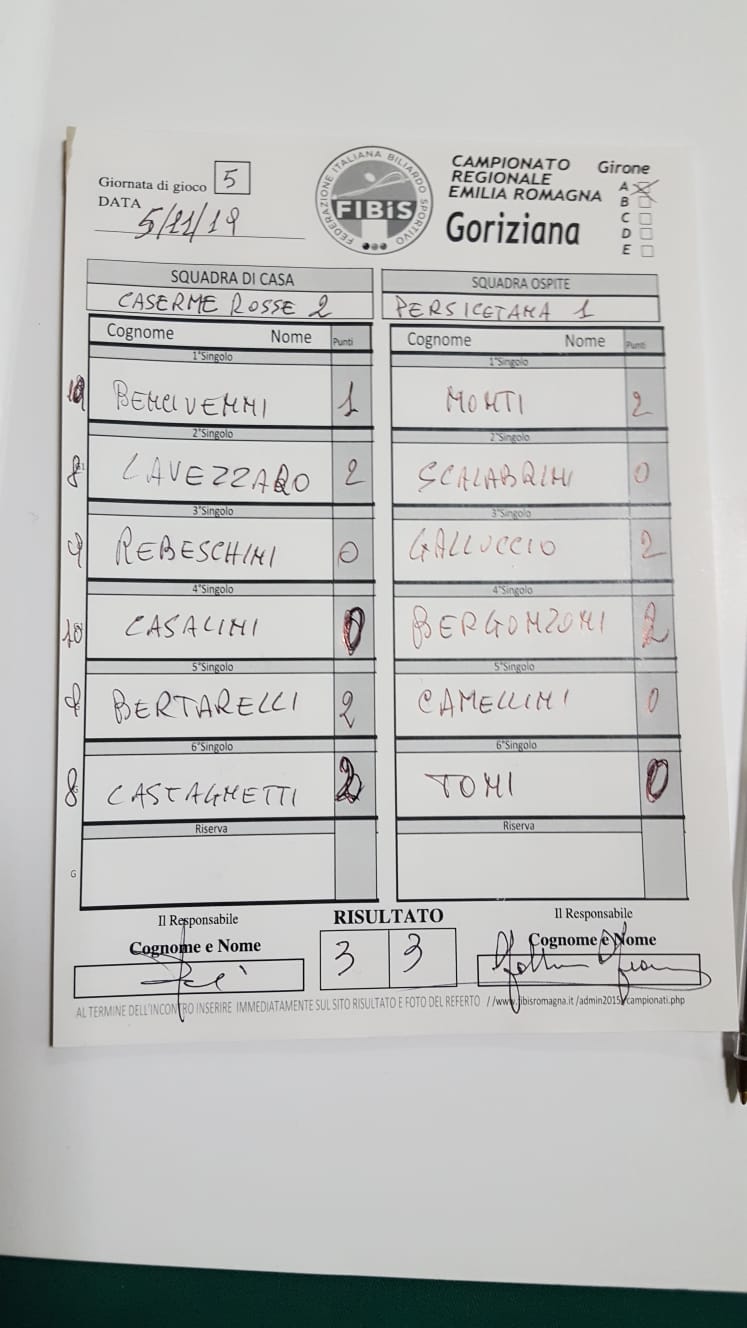 Giornata di gioco 5
DATA 5/11/19
FEDERAZIONE ITALIANA BILIARDO SPORTIVO
FIBiS
CAMPIONATO
REGIONALE
EMILIA ROMAGNA
Goriziana
Girone
A
B
C
D
E
SQUADRA DI CASA SQUADRA OSPITE
CASERME ROSSE 2 PERSICETANA 1
Cognome Nome Punti Cognome Nome Punti
1°Singolo 1°Singolo
10 BENCIVENNI 1 MONTI 2
2°Singolo 2°Singolo
8 LAVEZZARO 2 SCALABRINI 0
3°Singolo 3°Singolo
9 REBESCHINI 0 GALLUCCIO 2
4°Singolo 4°Singolo
10 CASALINI 0 BERGONZONI 2
5°Singolo 5°Singolo
8 BERTARELLI 2 CAMELLINI 0
6°Singolo 6°Singolo
8 CASTAGNETTI 2 TONI 0
Riserva Riserva
G
Il Responsabile RISULTATO Il Responsabile
Cognome e Nome 3 3 Cognome e Nome
AL TERMINE DELL'INCONTRO INSERIRE IMMEDIATAMENTE SUL SITO RISULTATO E FOTO DEL REFERTO //www.fibisromagna.it /admin2015/campionati.php